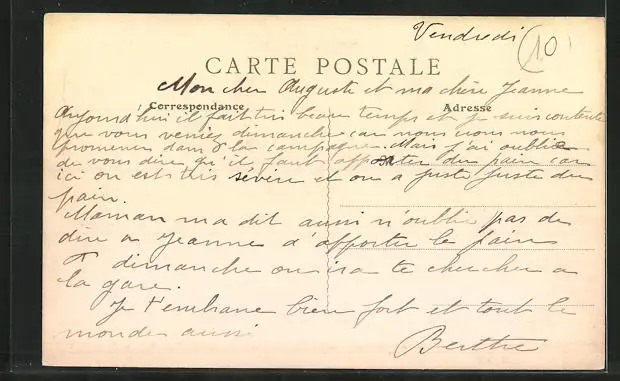 Vendredi 10
CARTE POSTALE
Mon cher Auguste et ma chère Jeanne
Correspondance
Adresse
Aujourd'hui il fait très beau temps et je suis contente
que vous veniez dimanche car nous irons nous
promener dans la campagne. Mais j'ai oublié
de vous dire qu'il faut apporter du pain car
ici on est très sévère et on a juste juste du
pain.
Maman m'a dit aussi n'oublie pas de
dire a Jeanne d'apporter le pain
dimanche on ira te chercher a
la gare.
Je t'embrasse bien fort et tout le
monde aussi
Berthe